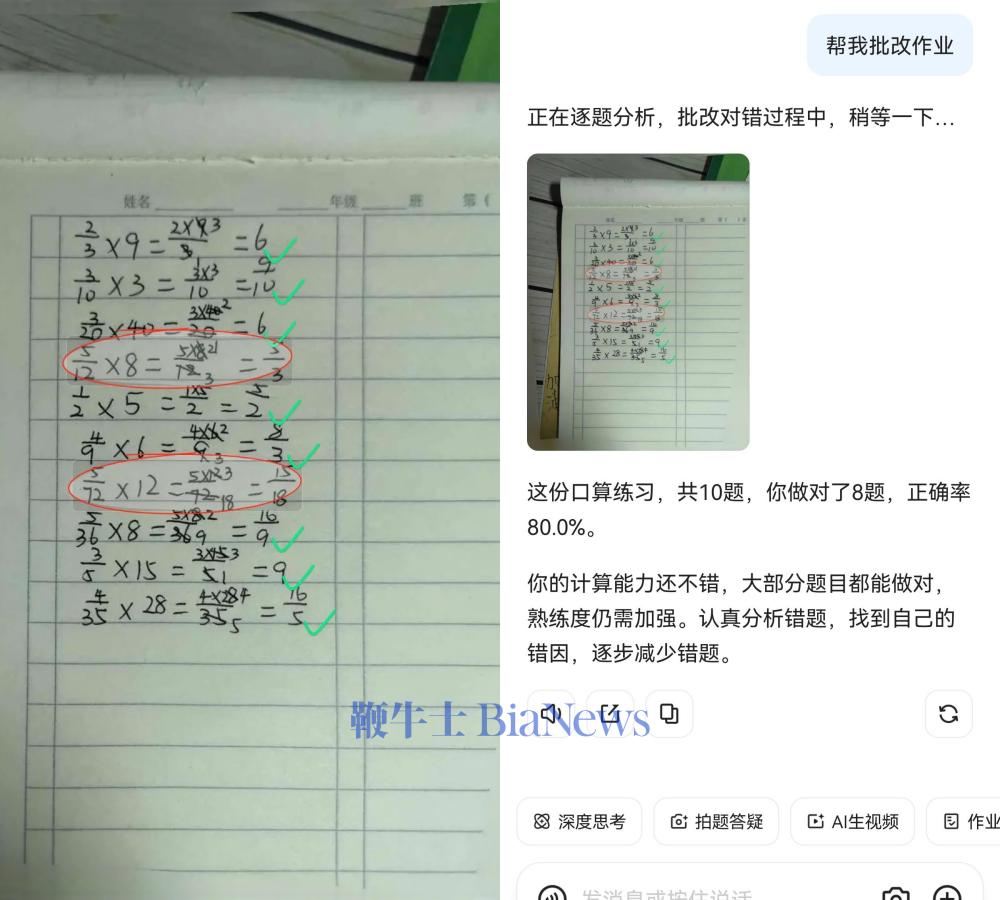 姓名 年级 班 第(
2/3 × 9 = 2×9 3/3 1 = 6
3/10 × 3 = 3×3/10 = 9/10
3/20 × 40 = 3×40 2/20 = 6
5/12 × 8 = 5×8 2/12 3 = 5/3
1/2 × 5 = 1×5/2 = 5/2
4/9 × 6 = 4×6 2/9 3 = 8/3
5/72 × 12 = 5×12 3/72 18 = 15/18
5/36 × 8 = 5×8 2/36 9 = 10/9
3/5 × 15 = 3×15 3/5 1 = 9
4/35 × 28 = 4×28 4/35 5 = 16/5
帮我批改作业
正在逐题分析，批改对错过程中，稍等一下...
这份口算练习，共10题，你做对了8题，正确率
80.0%。
你的计算能力还不错，大部分题目都能做对，
熟练度仍需加强。认真分析错题，找到自己的
错因，逐步减少错题。
鞭牛士 BiaNews
深度思考 拍题答疑 AI生视频 作业
发消息或按住说话